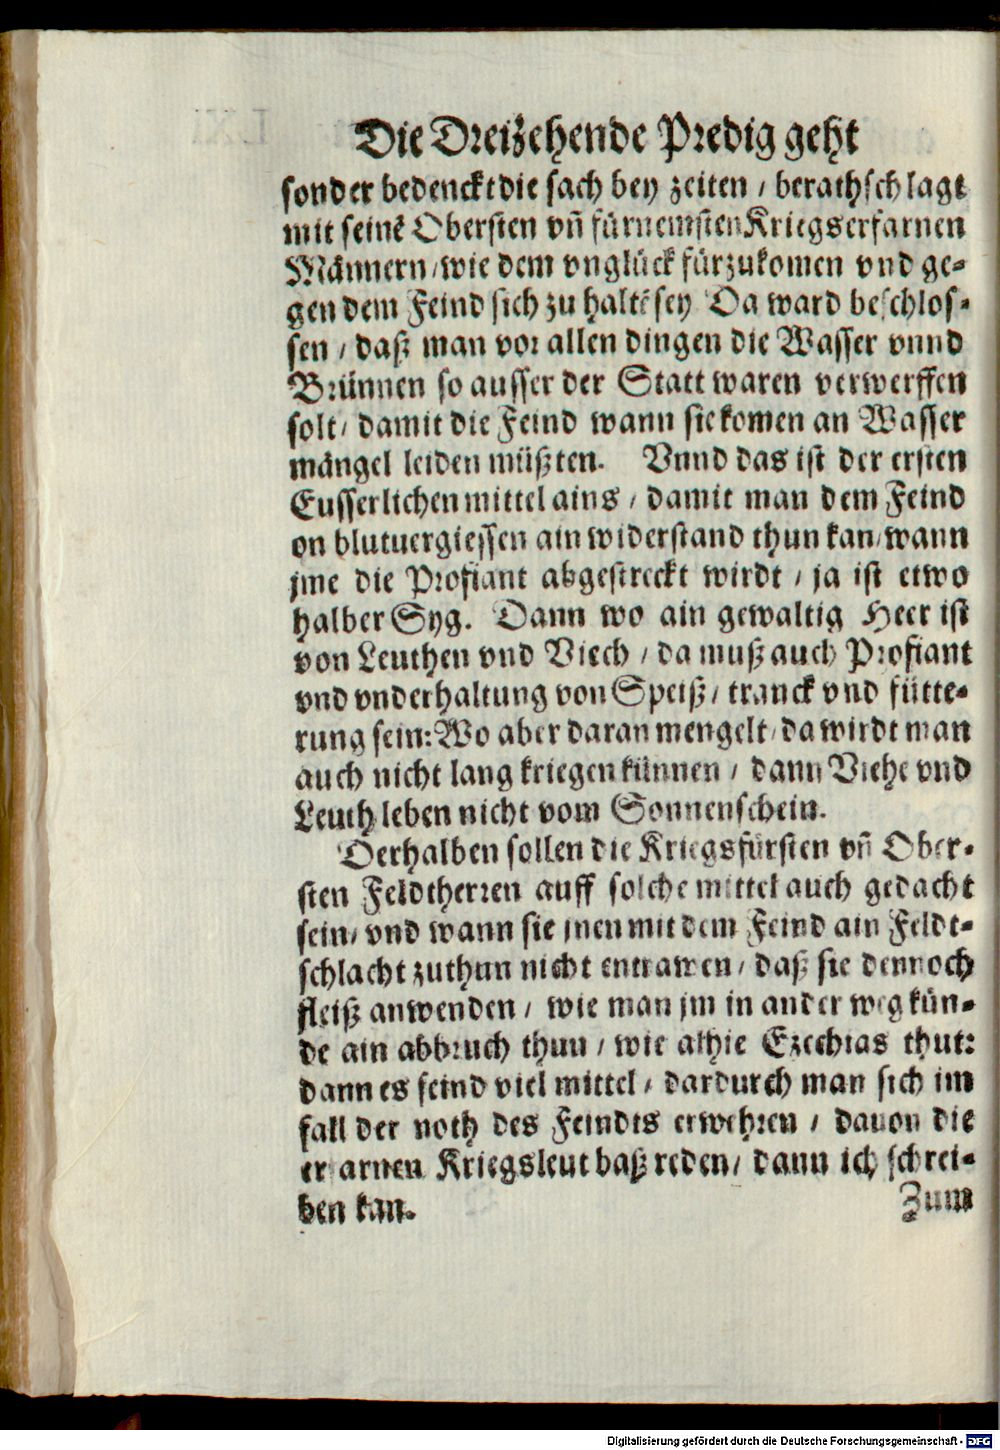 Die Dreizehende Predig geht
sonder bedenckt die sach bey zeiten / berathschlagt
mit seinẽ Obersten vñ fürnemsten Kriegserfarnen
Männern / wie dem vnglück fürzukomen vnd ge-
gen dem Feind sich zu haltẽ sey Da ward beschlos-
sen / daß man vor allen dingen die Wasser vnnd
Brünnen so ausser der Statt waren verwerffen
solt / damit die Feind wann sie komen an Wasser
mängel leiden müßten. Vnnd das ist der ersten
Eusserlichen mittel ains / damit man dem Feind
on blutuergiessen ain widerstand thun kan / wann
jme die Profiant abgestreckt wirdt / ja ist etwo
halber Syg. Dann wo ain gewaltig Heer ist
von Leuthen vnd Viech / da muß auch Profiant
vnd vnderhaltung von Speiß / tranck vnd fütte-
rung sein: Wo aber daran mengelt / da wirdt man
auch nicht lang kriegen künnen / dann Viehe vnd
Leuth leben nicht vom Sonnenschein.
Derhalben sollen die Kriegsfürsten vñ Ober-
sten Feldtherren auff solche mittel auch gedacht
sein / vnd wann sie jnen mit dem Feind ain Feldt-
schlacht zuthun nicht entrawen / daß sie dennoch
fleiß anwenden / wie man jm in ander weg kün-
de ain abbruch thun / wie alhie Ezechias thut:
dann es seind viel mittel / dardurch man sich im
fall der noth des Feindts erwehren / dauon die
erfarnen Kriegsleut baß reden / dann ich schrei-
ben kan.
Zum
Digitalisierung gefördert durch die Deutsche Forschungsgemeinschaft - DFG